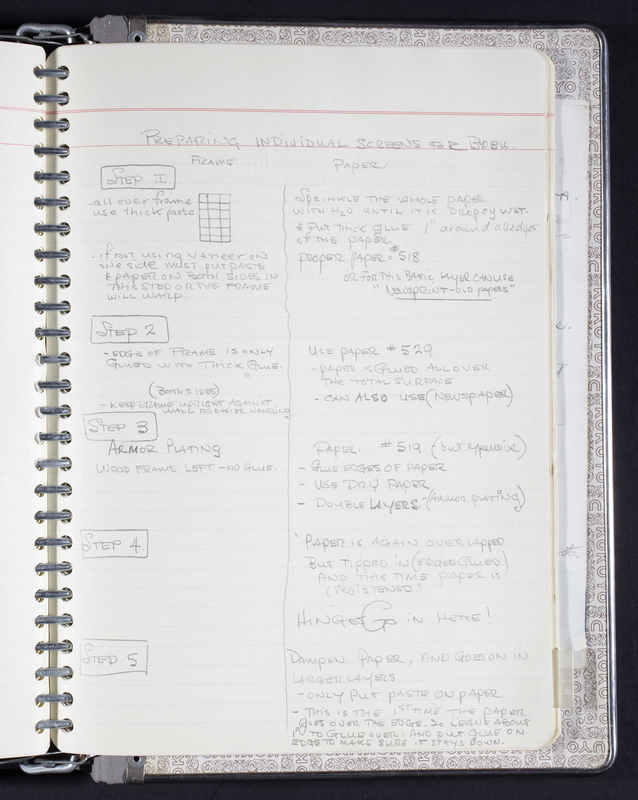 PREPARING INDIVIDUAL SCREENS FOR
FRAME
PAPER
STEP I
-all over frame
use thick paste
- if NOT USING VENEER ON
ONE SIDE MUST PUT PASTE
& PAPER ON BOTH SIDES IN
THIS STEP OR THE FRAME
WILL WARP.
SPRINKLE THE WHOLE PAPER
WITH H2O UNTIL IT IS DROPSY WET.
& PUT THICK GLUE 1" around all edges
of THE PAPER.
PROPER PAPER = #518
OR FOR THIS BASIC LAYER CAN USE
"NEWSPRINT-OLD PAPERS"
STEP 2
- EDGE OF FRAME IS ONLY
GLUED WITH THICK GLUE.
(BOTH SIDES)
- KEEP FRAME UPRIGHT AGAINST
WALL FOR EASIER HANDLING
USE PAPER #529
- PAPER IS GLUED ALL OVER
THE TOTAL SURFACE
- CAN ALSO USE (NEWSPAPER)
STEP 3
ARMOR PLATING
WOOD FRAME LEFT - NO GLUE.
PAPER #519 (but expensive)
- GLUE EDGES OF PAPER
- USE DRY PAPER
- DOUBLE LAYERS - (ARMOR PLATING)
STEP 4
PAPER IS AGAIN OVERLAPPED
BUT TIPPED IN (EDGES GLUED)
AND THIS TIME PAPER IS
(MOISTENED!)
HINGES GO IN HERE!
STEP 5
DAMPEN PAPER, AND GOES ON IN
LARGER LAYERS
- ONLY PUT PASTE ON PAPER
- THIS IS THE 1ST TIME THE PAPER
GOES OVER THE EDGE, SO LEAVE ABOUT
1" TO GLUE OVER, AND PUT GLUE ON
EDGE TO MAKE SURE IT STAYS DOWN.
KOKUYO